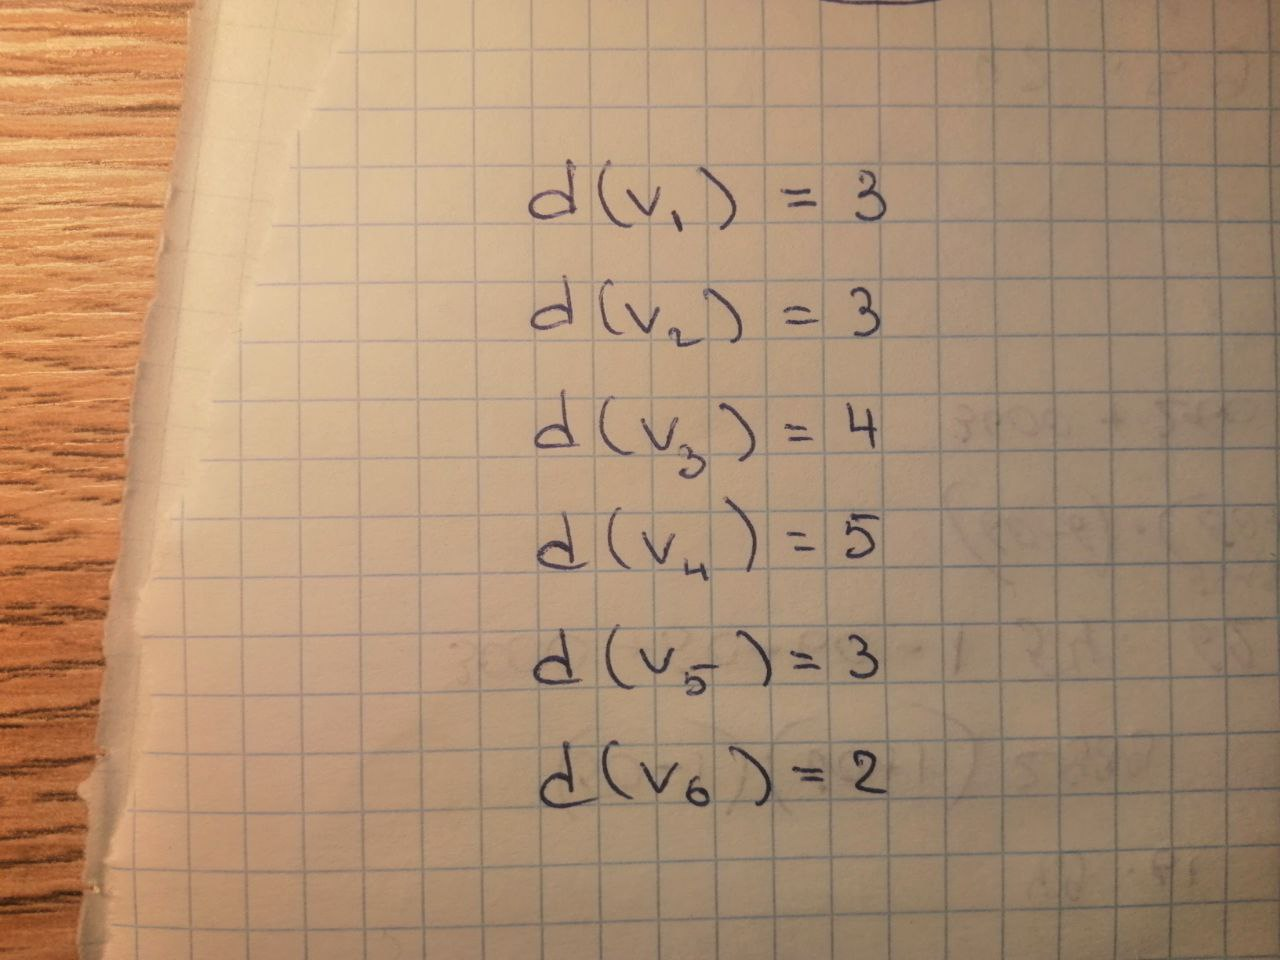 d(v₁) = 3
d(v₂) = 3
d(v₃) = 4
d(v₄) = 5
d(v₅) = 3
d(v₆) = 2